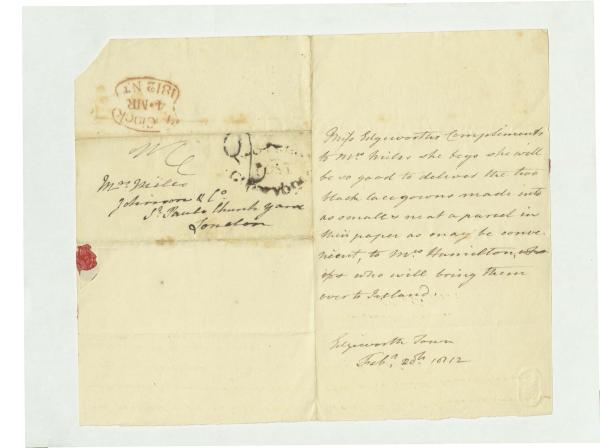 4 o'Clock
4 • MR
1812 N.T
Mrs. Miles
Johnson & Co.
St. Pauls Church Yard
London
Miss Edgeworth's Compliments
to Mrs. Miles she begs she will
be so good to deliver the two
black lace gowns made into
as small & neat a parcel in
thin paper as may be conve-
nient, to Mrs. Hamilton,
who will bring them
over to Ireland.
Edgeworth Town
Feby. 28th. 1812